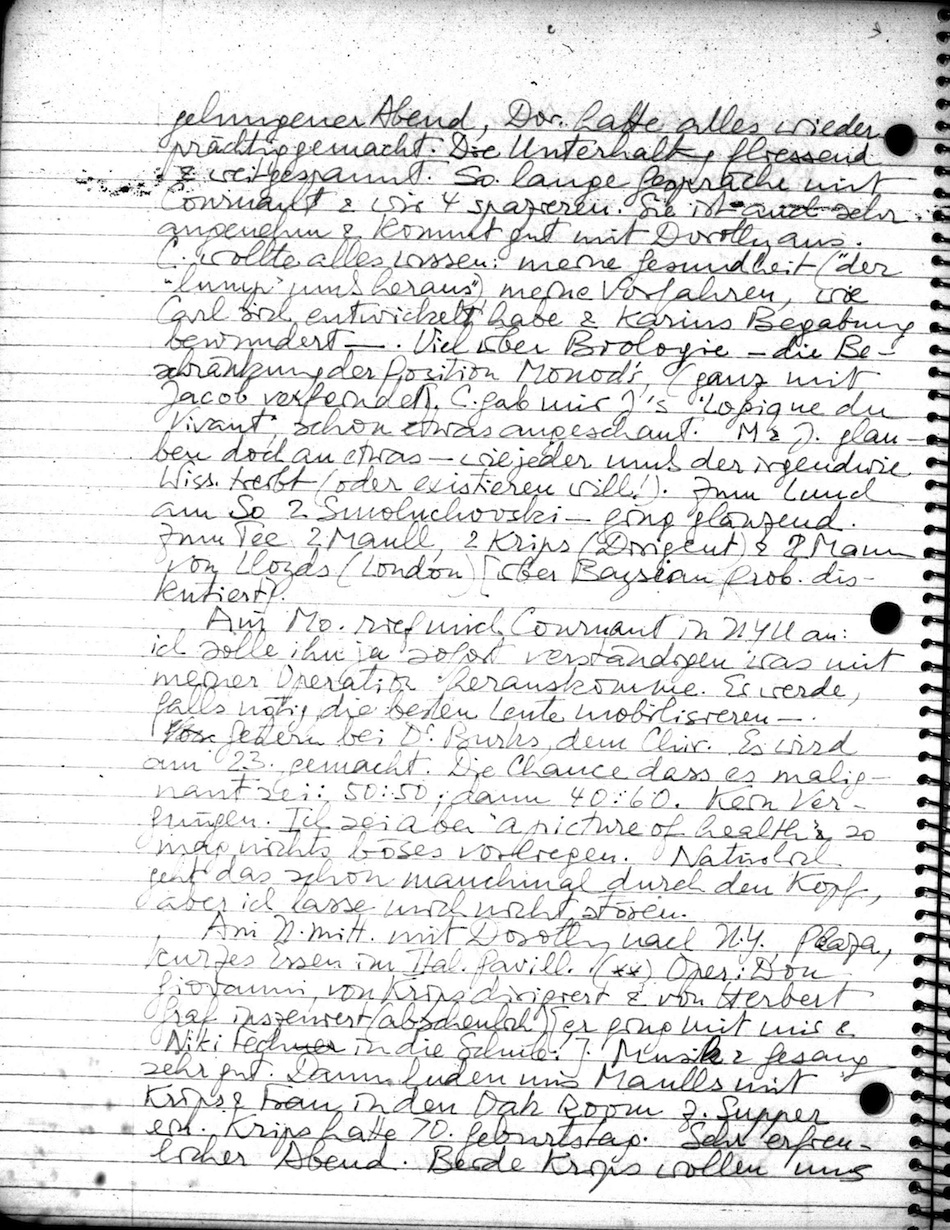 gelungener Abend, Dor. hatte alles wieder
prächtig gemacht. Die Unterhaltg fliessend
& weitgespannt. So. lange Gespräche mit
Cournant & wir 4 spazieren. Sie ist auch sehr
angenehm & kommt gut mit Dorothy aus.
C. wollte alles wissen: meine Gesundheit ("der
"lump" muß heraus") meine Vorfahren, wie
Carl sich entwickelt habe & Karins Begabung
bewundert —. Viel über Biologie — die Be-
schränkung der Position Monod's, (ganz mit
Jacob verfeindet). C. gab mir J's "Logique du
Vivant", schon etwas angeschaut. M & J. glau-
ben doch an etwas — wie jeder muß der irgendwie
Wiss. treibt (oder existieren will!). Zum Lunch
am So 2 Smoluchovski — ging glänzend.
Zum Tee 2 Maull, 2 Krips (Dirigent) & 2 Mann
von Lloyds (London) [über Baysian prob. dis-
kutiert].
Am Mo. rief mich Cournant in NYU an:
ich solle ihn ja sofort verständigen was mit
meiner Operation herauskomme. Er werde,
falls nötig, die besten Leute mobilisieren —.
Gestern bei Dr Burks, dem Chir. Es wird
am 23. gemacht. Die Chance dass es malig-
nant sei: 50:50; dann 40:60. Kein Ver-
gnügen. Ich sei aber "a picture of health" & so
mag nichts böses vorliegen. Natürlich
geht das schon manchmal durch den Kopf,
aber ich lasse mich nicht stören.
Am N.mitt. mit Dorothy nach N.Y. Plaza,
kurzes Essen im Ital. Pavill. (xx) Oper: Don
Giovanni, von Krips dirigiert & von Herbert
Graf inszeniert (abscheulich) [er ging mit mir &
Niki Fechner in die Schule!]. Musik & Gesang
sehr gut. Dann luden uns Maulls mit
Krips & Frau in den Oak Room z. Supper
ein. Krips hatte 70. Geburtstag. Sehr erfreu-
licher Abend. Beide Krips wollen uns